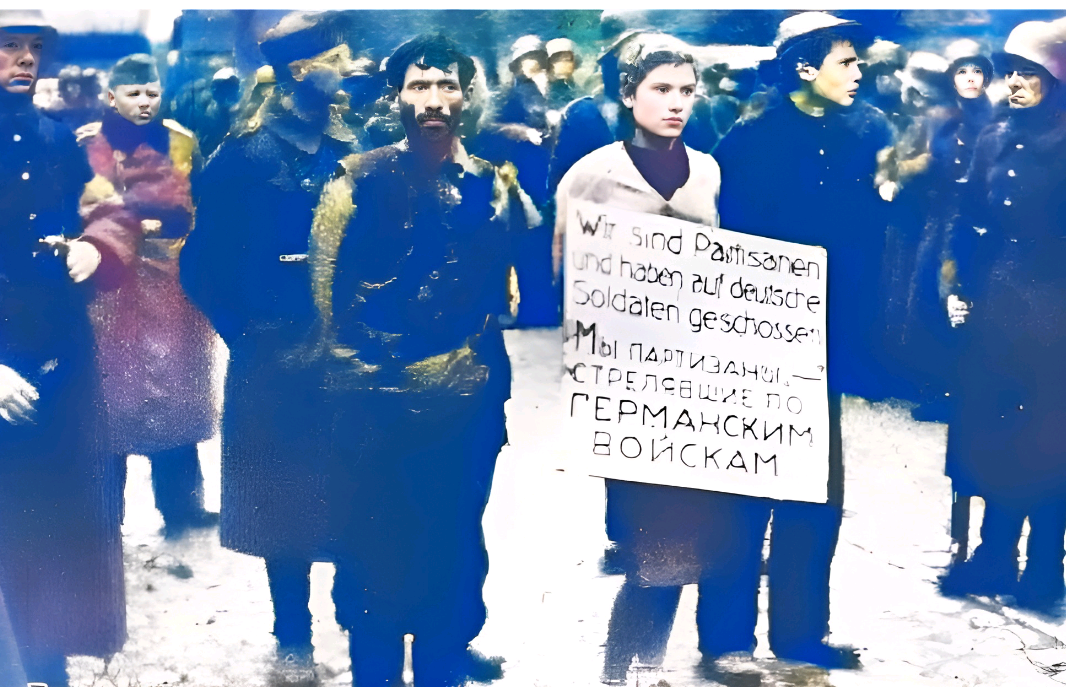 Wir sind Partisanen
und haben auf deutsche
Soldaten geschossen
Мы ПАРТИЗАНЫ, —
СТРЕЛЯВШИЕ ПО
ГЕРМАНСКИМ
ВОЙСКАМ